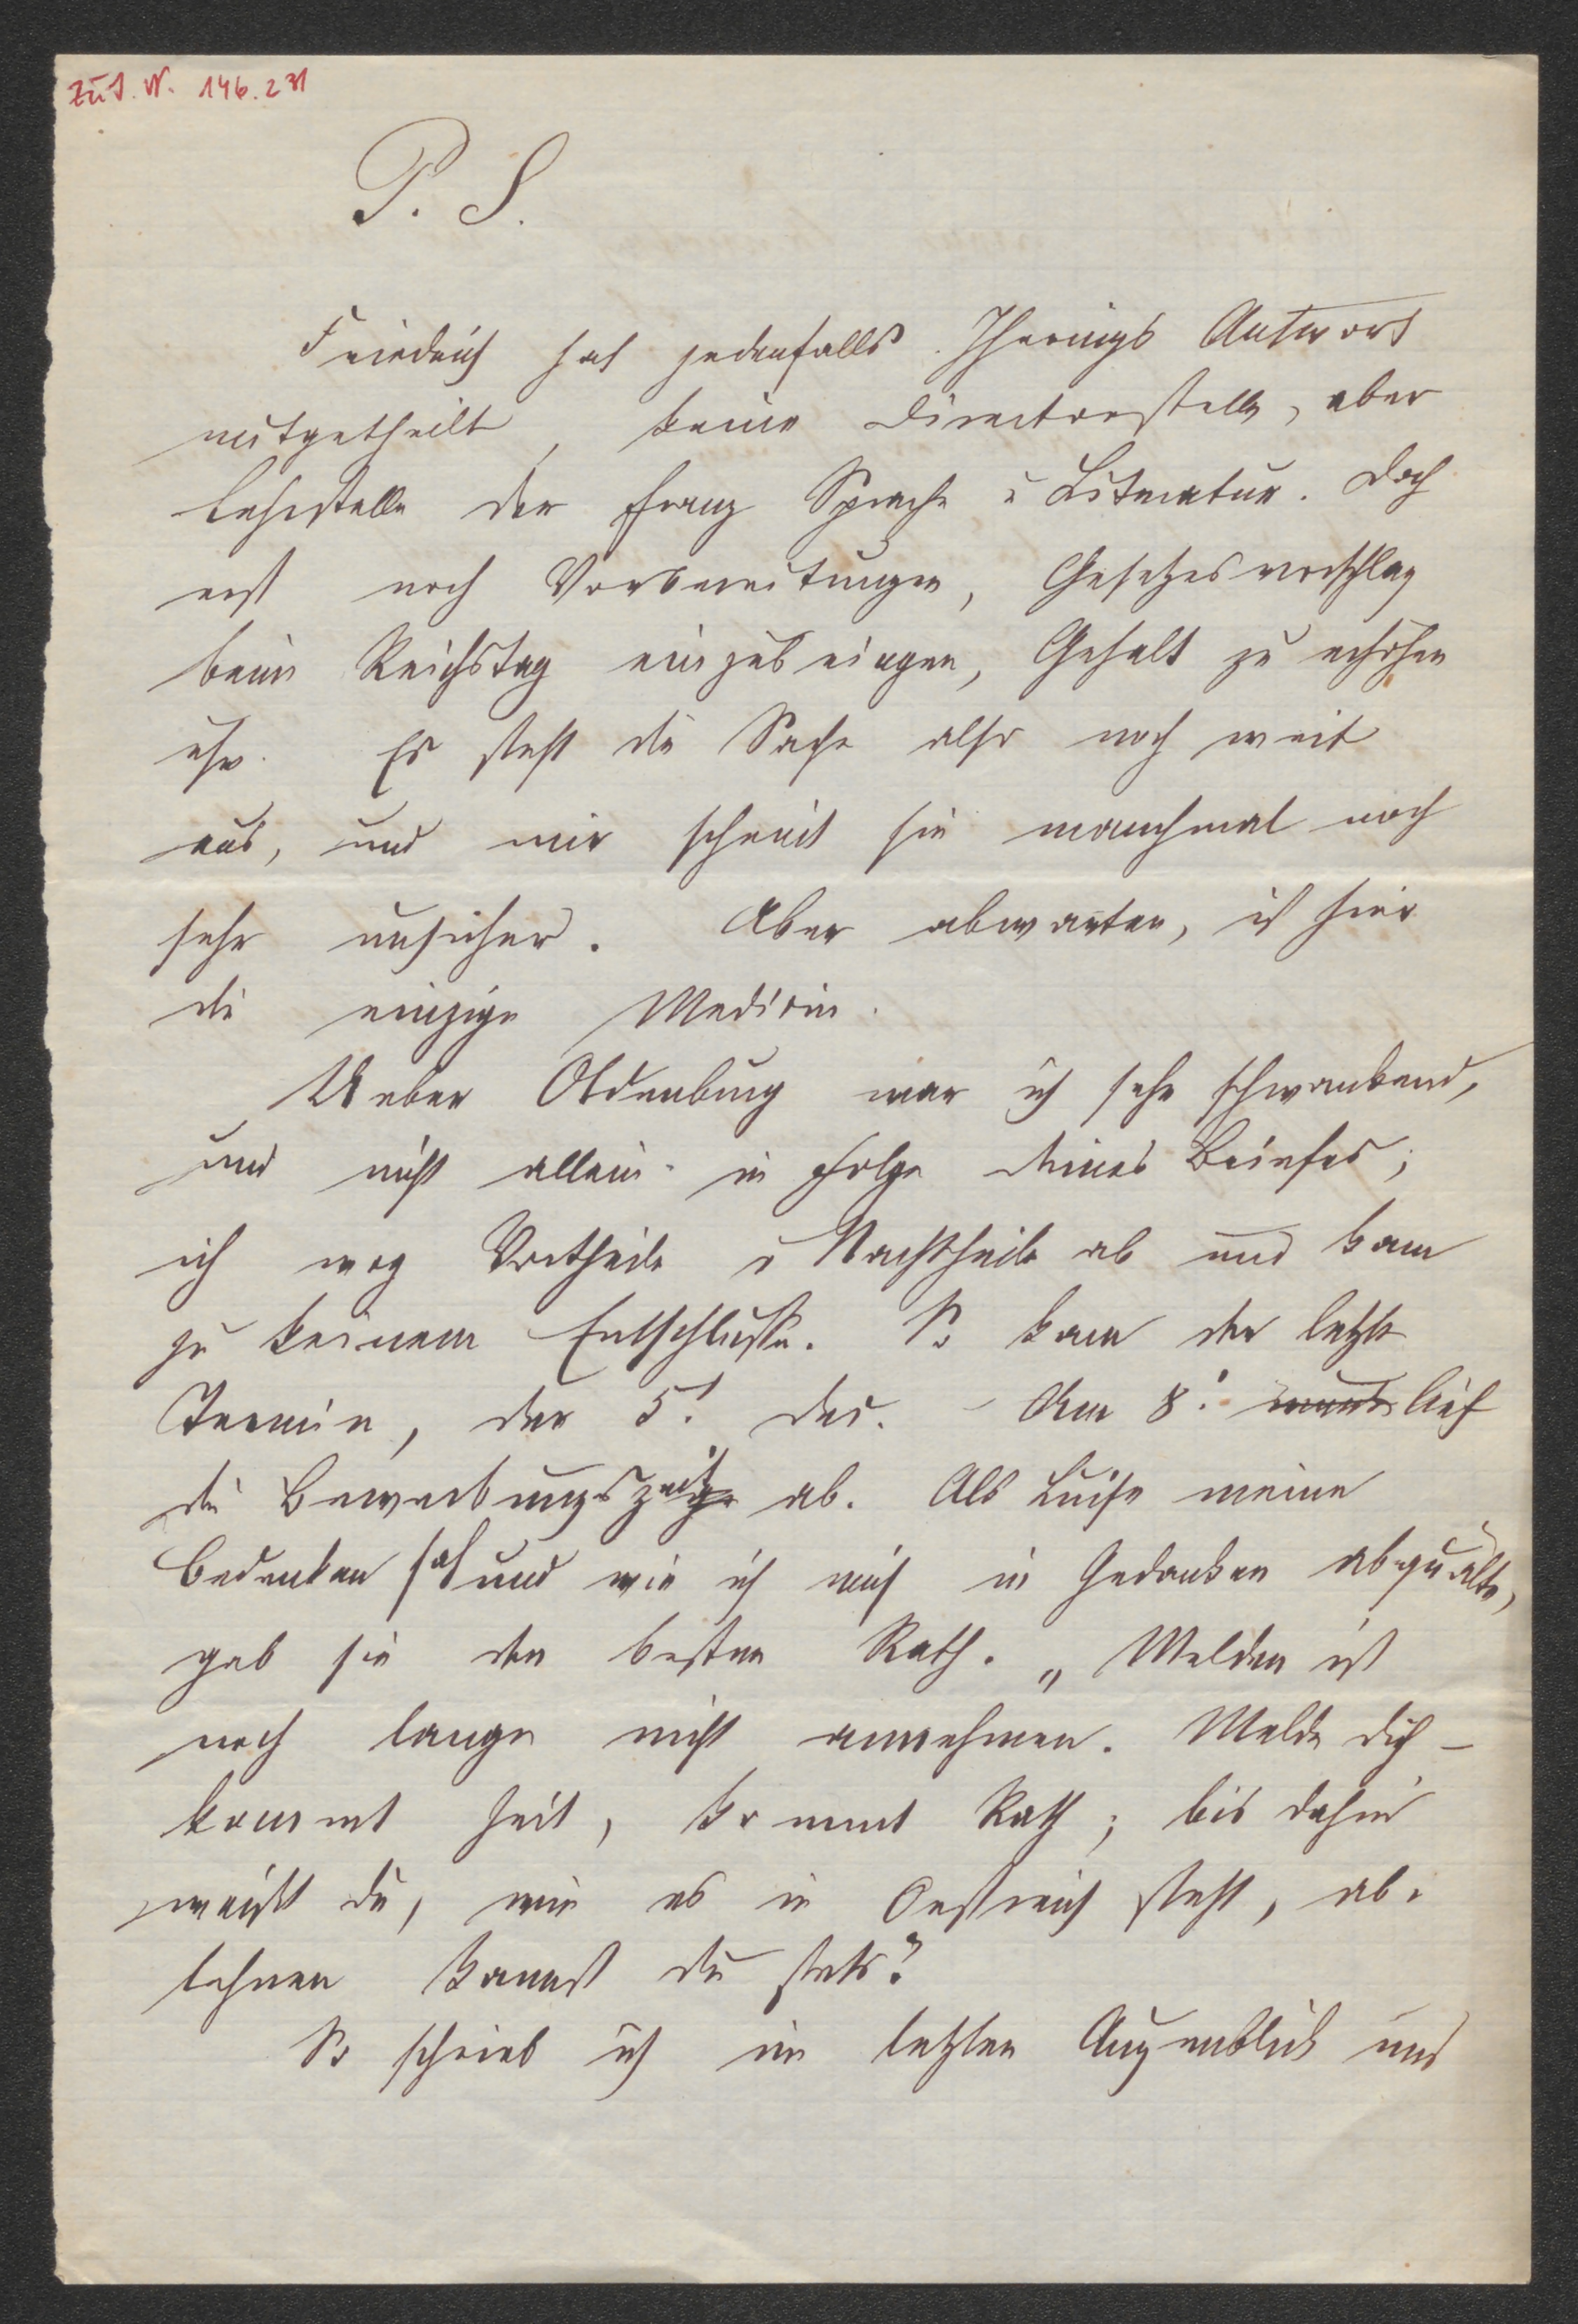 Zu I. N. 146.231
P. S.
Friedrich hat jedenfalls Iherings Antwort
mitgetheilt, keine Directorstelle, aber
Lehrstelle der franz Sprache u Literatur. Doch
erst noch Vorbereitungen, Gesetzesvorschlag
beim Reichstag einzubringen, Gehalt zu erhöhen
usw. Es steht die Sache also noch weit
aus, und mir scheint sie manchmal noch
sehr unsicher. Aber abwarten, ist hier
die einzige Medicin.
Ueber Oldenburg war ich sehr schwankend,
und nicht allein in Folge deines Briefes;
ich wog Vortheile u Nachtheile ab und kam
zu keinem Entschlusse. So kam der letzte
Termin, der 5t. des. – Am 8t. lief
die Bewerbungszeit ab. Als Luise meine
Bedenken sah und wie ich mich in Gedanken abquälte,
gab sie den besten Rath. „Melden ist
noch lange nicht annehmen. Melde dich –
kommt Zeit, kommt Rath; bis dahin
weißt du, wie es in Oestreich steht, ab-
lehnen kannst du stets."
So schrieb ich im letzten Augenblick und